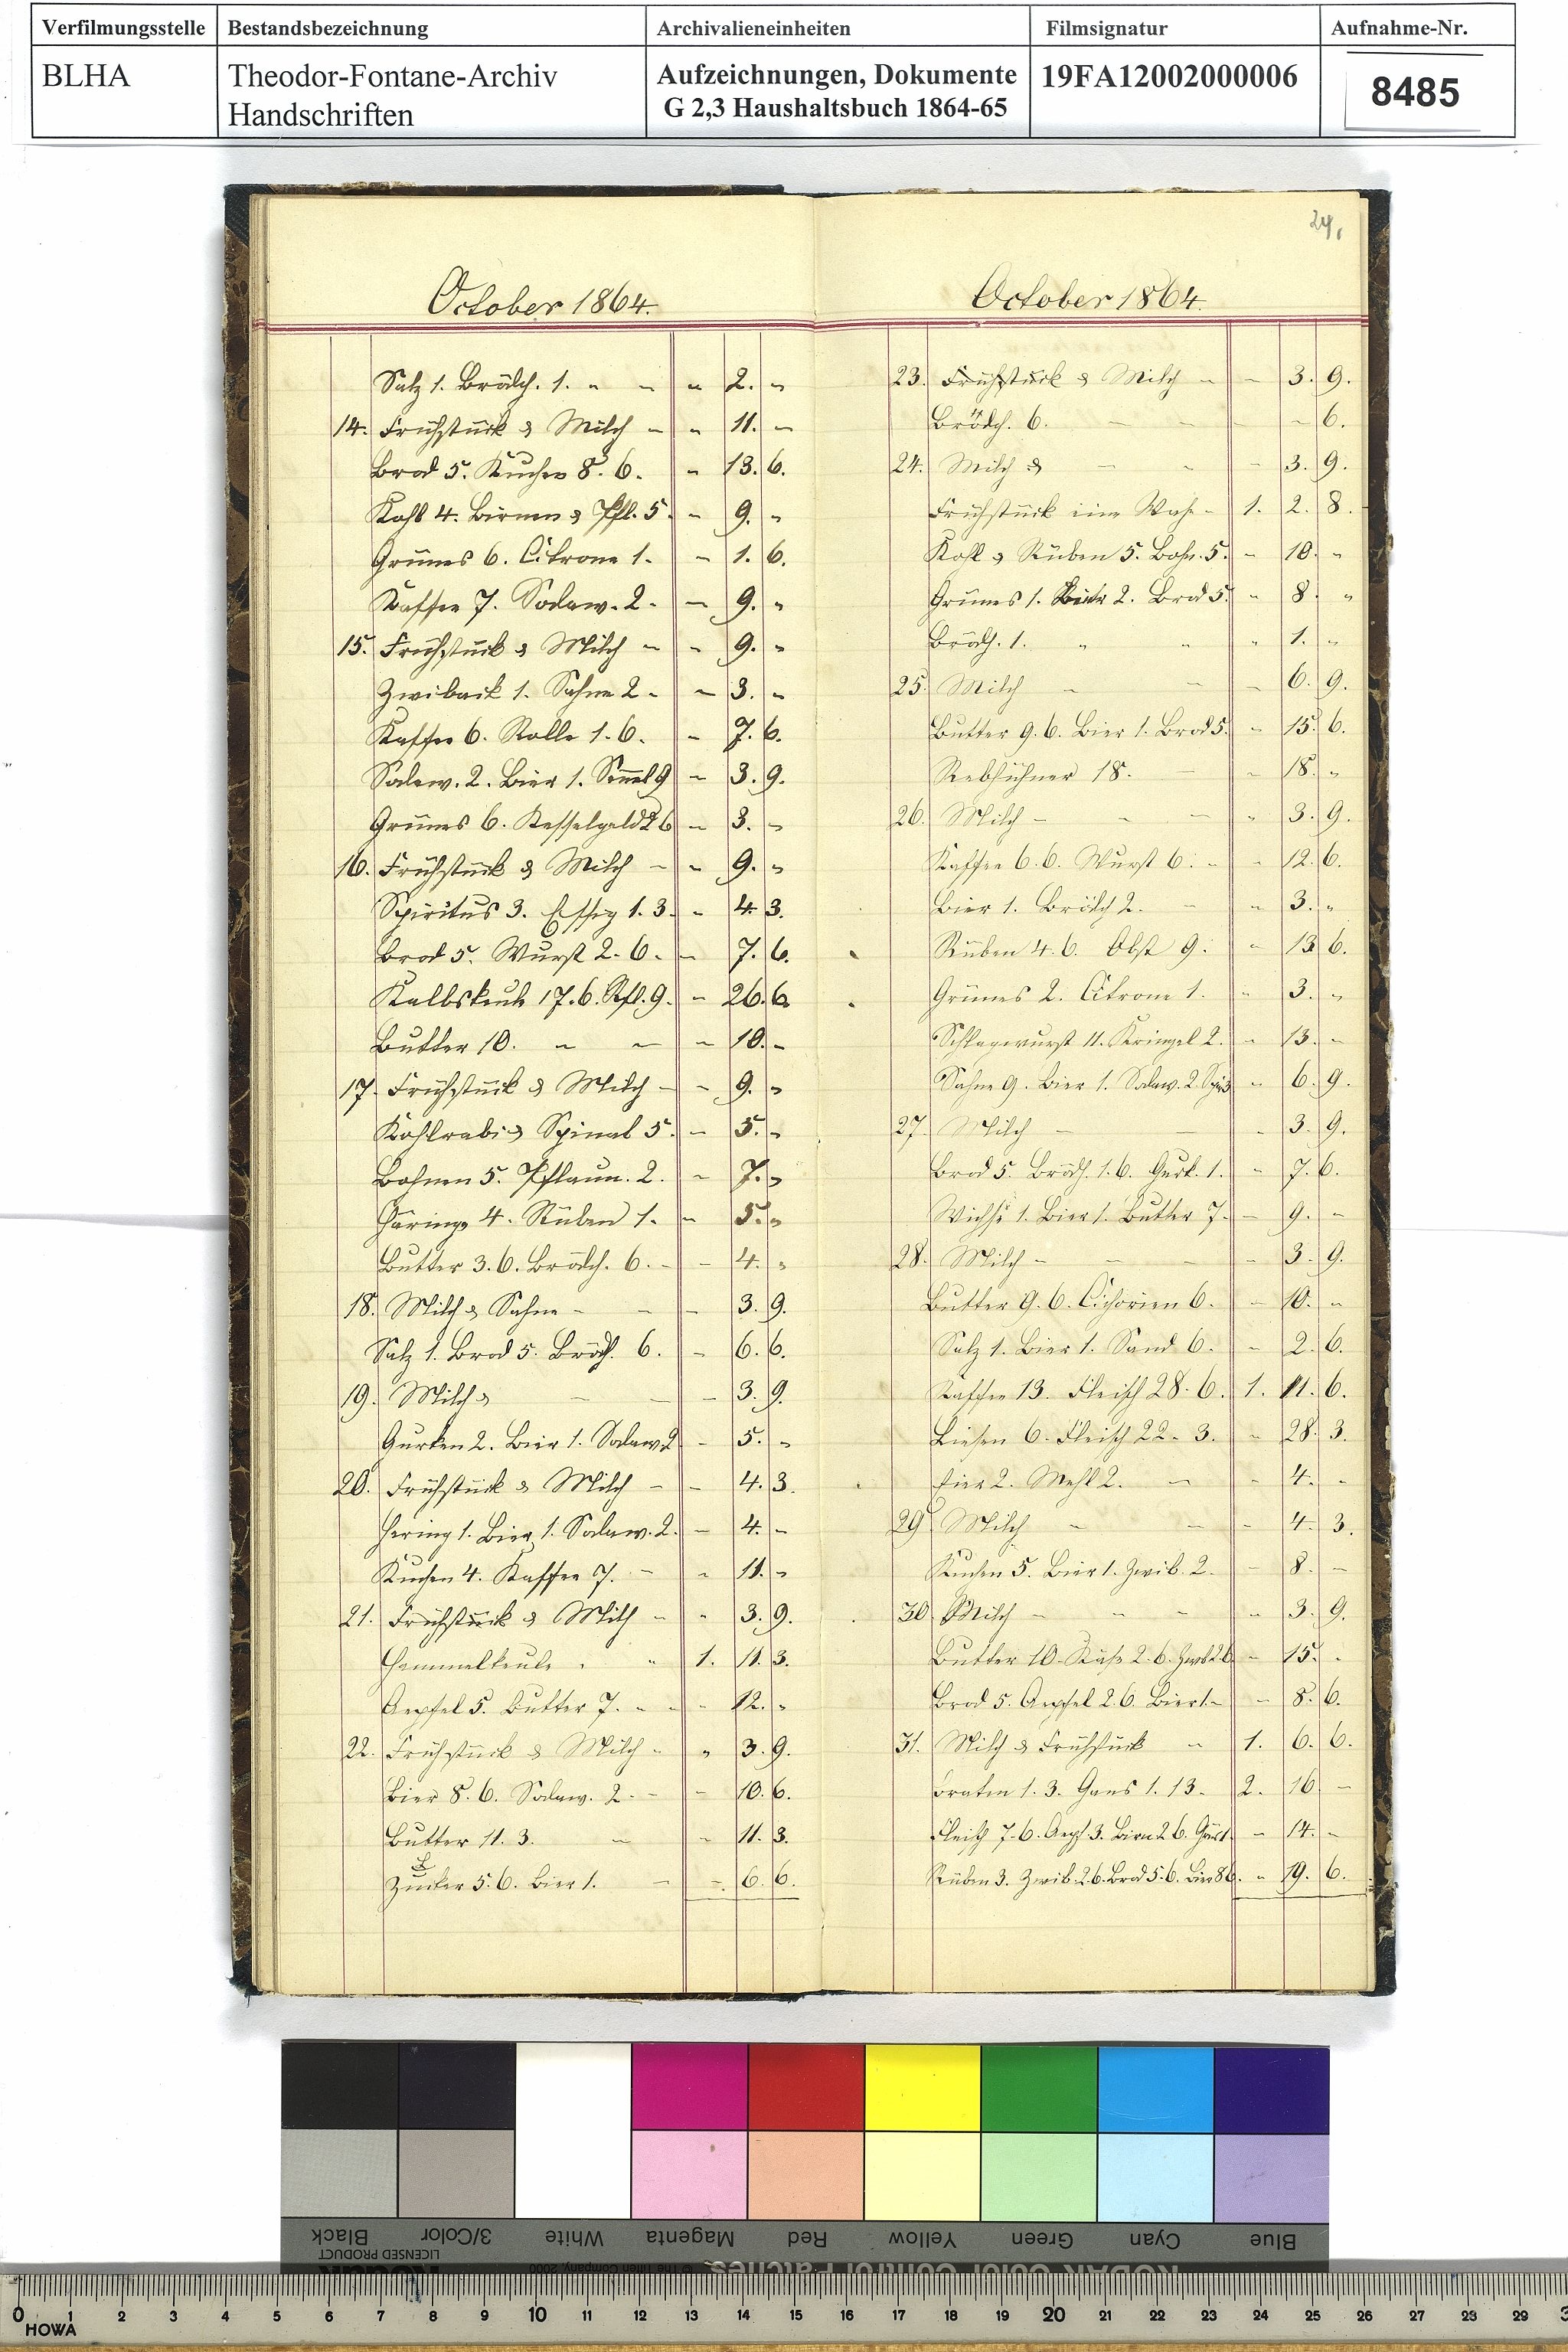 Verfilmungsstelle Bestandsbezeichnung Archivalieneinheiten Filmsignatur Aufnahme-Nr.
BLHA Theodor-Fontane-Archiv Handschriften Aufzeichnungen, Dokumente G 2,3 Haushaltsbuch 1864-65 19FA12002000006 8485
October 1864.
Salz 1. Brödch. 1. " " " 2. "
14. Frühstück & Milch - " 11. -
Brod 5. Kuchen 8. 6. " 13. 6.
Kohl 4. Birnen & Pfl. 5. - 9. "
Grünes 6. Citrone 1. - 1. 6.
Kaffee 7. Sodaw. 2. - 9. "
15. Frühstück & Milch - - 9. "
Zwiback 1. Sahne 2 - - 3. "
Kaffee 6. Rolle 1. 6. - 7. 6.
Sodaw. 2. Bier 1. Semmel 9 - 3. 9.
Grünes 6. Kesselgeld 2 6 - 3. -
16. Frühstück & Milch - " 9. "
Spiritus 3. Essig 1. 3. - 4. 3.
Brod 5. Wurst 2. 6. - 7. 6.
Kalbskeule 17. 6. Pfl. 9. - 26. 6.
Butter 10. - - - 10. -
17. Frühstück & Milch - - 9. "
Kohlrabi & Spinat 5. - 5. "
Bohnen 5. Pflaum. 2. - 7. "
Häringe 4. Rüben 1. - 5. "
Butter 3. 6. Brödch. 6. - - 4. "
18. Milch & Sahne - - - 3. 9.
Salz 1. Brod 5. Brödch. 6. - 6. 6.
19. Milch & - - - 3. 9.
Gurken 2. Bier 1. Sodaw. 2 - 5. "
20. Frühstück & Milch - - 4. 3.
Hering 1. Bier 1. Sodaw. 2. - 4. -
Kuchen 4. Kaffee 7. - " 11. "
21. Frühstück & Milch - " 3. 9.
Hammelkeule . " 1. 11. 3.
Aepfel 5. Butter 7. - - - 12. "
22. Frühstück & Milch - " 3. 9.
Bier 8. 6. Sodaw. 2. - - 10. 6.
Butter 11. 3. - - 11. 3.
Zucker 5. 6. Bier 1. - - 6. 6.
24,
October 1864.
23. Frühstück & Milch - - 3. 9.
Brödch. 6. - - - - 6.
24. Milch & - - - 3. 9.
Frühstück - 1. 2. 8.
Kohl & Rüben 5. Bohn. 5. - 10. "
Grünes 1. Bier 2. Brod 5. " 8. "
Brödch. 1. " " " 1. "
25. Milch - - - 6. 9.
Butter 9. 6. Bier 1. Brod 5. - 15. 6.
Rebhühner 18. - - 18. "
26. Milch - - - " 3. 9.
Kaffee 6. 6. Wurst 6. - - 12. 6.
Bier 1. Brödch 2. - " 3. "
Rüben 4. 6. Obst 9. " 13 6.
Grünes 2. Citrone 1. " 3. "
Schlagwurst 11. Kringel 2. - 13. -
Sahne 9. Bier 1. Sodaw. 2. Spir 3 - 6. 9.
27. Milch - - - 3. 9.
Brod 5. Brödch. 1. 6. Gurk. 1. - 7. 6.
Wichse 1. Bier 1. Butter 7. - 9. -
28. Milch - - - - 3. 9.
Butter 9. 6. Cichorien 6. - 10. "
Salz 1. Bier 1. Sand 6. - 2. 6.
Kaffee 13. Fleisch 28. 6. 1. 11. 6.
Liesen 6. Fleisch 22. 3. " 28. 3.
Eier 2. Mehl 2. - - 4. -
29 Milch - - - 4. 3.
Kuchen 5. Bier 1. Zwib. 2. - 8. -
30 Milch - - - - 3. 9.
Butter 10. Käse 2. 6. Zwb 2 6 - 15. .
Brod 5. Aepfel 2. 6. Bier 1. - - 8. 6.
31. Milch & Frühstück - 1. 6. 6.
Braten 1. 3. Gans 1. 13. 2. 16. -
Fleisch 7. 6. Aepf. 3. Birn 2 6. - 14. -
Rüben 3. Zwib. 2 6. Brod 5. 6. Bier 8 6. " 19. 6.
Black 3/Color White Magenta Red Yellow Green Cyan Blue
LICENSED PRODUCT
Kodak © The Tiffen Company, 2000 KODAK Color Control Patches
0 1 2 3 4 5 6 7 8 9 10 11 12 13 14 15 16 17 18 19 20 21 22 23 24 25 26 27 28 29 3
HOWA